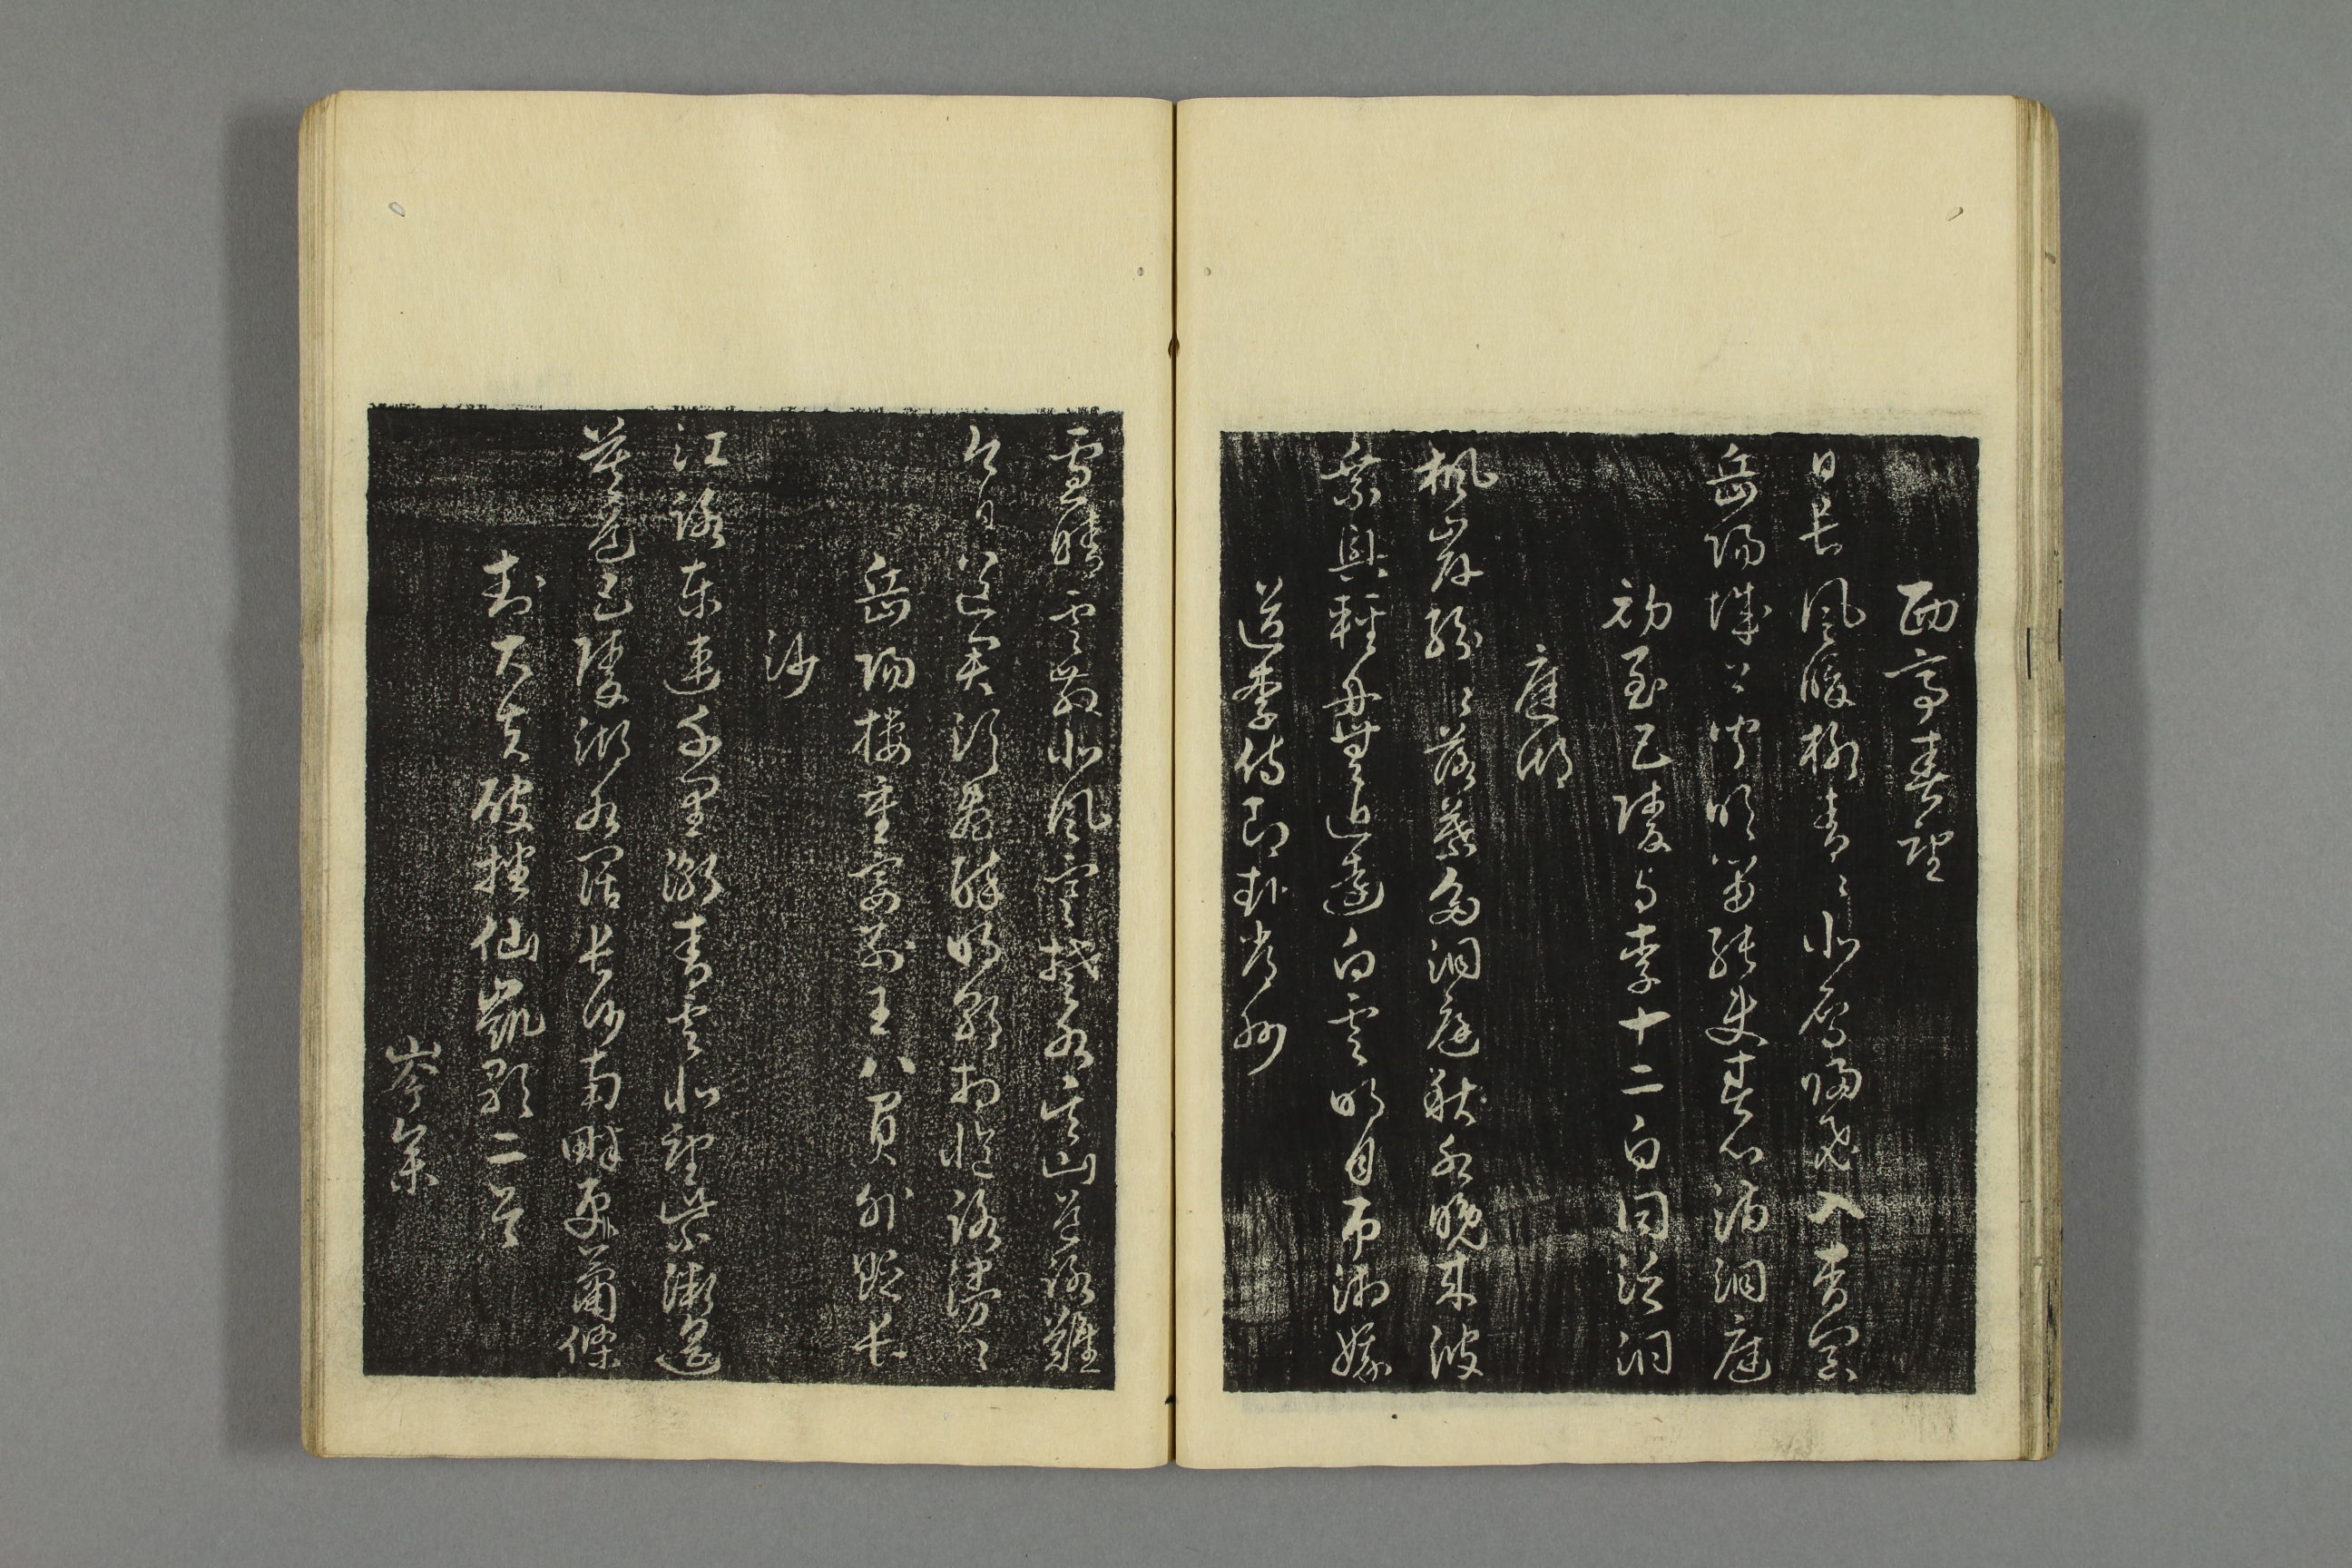 西亭春望
日長風暖柳青〻北雁歸飛入窅冥
岳陽城上聞吹笛能使春心滿洞庭
初至巴陵与李十二白同泛洞
庭湖
楓岸紛〻落葉多洞庭秋水晚来波
乗興輕舟無近遠白雲明月弔湘娥
送李侍郎赴常州
雪晴雲散北風寒楚水呉山道路難
今日送君須盡酔明朝相憶路漫〻
岳陽樓重宴別王八員外貶長
沙
江路東連千里潮青雲北望紫微遥
莫道巴陵湖水闊長沙南畔更蕭條
封大夫破播仙凱歌二首
岑参